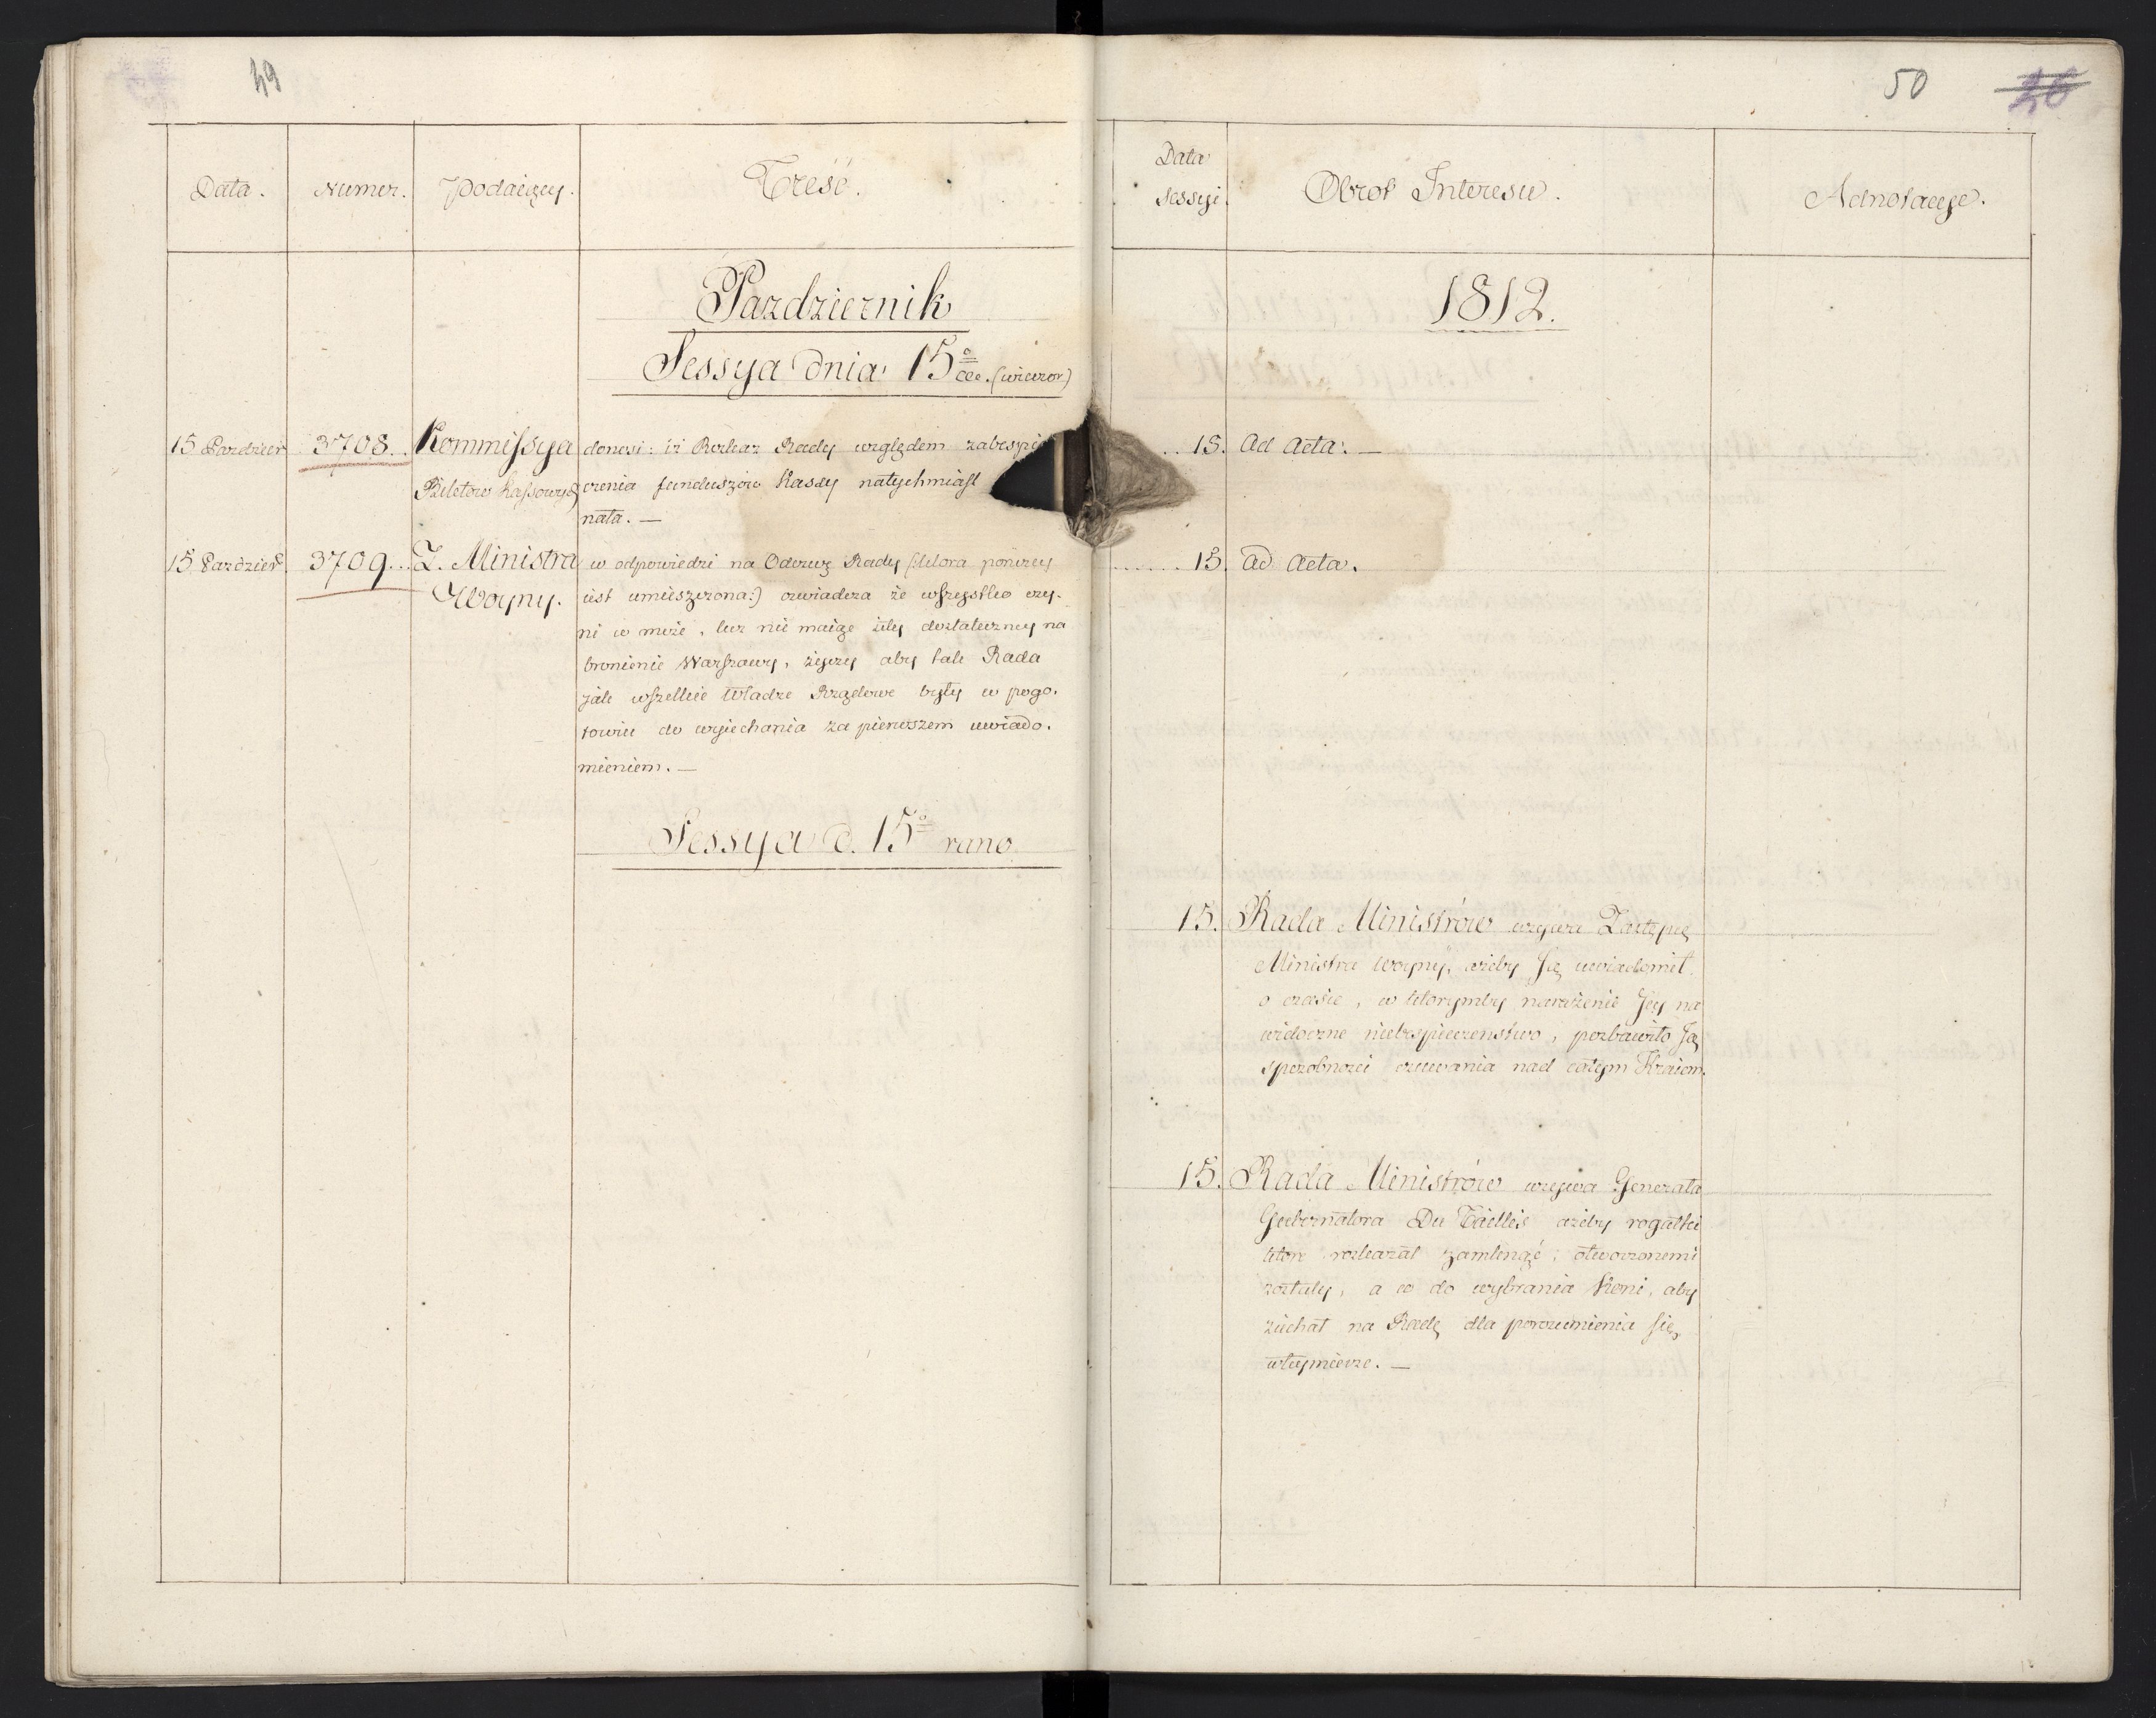 49
Data.
Numer.
Podaiący.
Treść.
Pazdziernik
Sessya dnia 15º (wieczor)
15 Pazdzier
3708.
Kommissya
Biletow Kassowych
donosi: iż Rozkaz Rady względem zabespie
czenia funduszów Kassy natychmiast
nała. —
15 Pazdzier.
3709...
Z. Ministra
Woyny.
w odpowiedzi na Odezwę Rady (:ktora poniżey
iest umieszczona:) oswiadcza że wszystko czy-
ni co może, lecz nie maiąc siły dostateczney na
bronienie Warszawy, życzy aby tak Rada
jak wszelkie Władze Rządowe były w pogo-
towiu do wyiechania za pierwszem uwiado-
mieniem. —
Sessya d. 15º rano
50
26
Data
Sessyi.
Obrot Interesu.
Adnotacye.
1812.
.. 15.
Ad Acta. —
...... 15.
Ad Acta.
15.
Rada Ministrów wzywa Zastępcę
Ministra Woyny, ażeby Ją uwiadomił
o czasie, w ktorymby narażenie Jey na
widoczne niebespieczenstwo, pozbawiło Ją
sposobności czuwania nad całym Kraiem.
15.
Rada Ministrów wzywa Generała
Gubernatora Du Taillis ażeby rogatki
ktore rozkazał zamknąć, otworzonemi
zostały, a co do wybrania koni, aby
ziechał na Radę dla porozumienia się
wteymierze. —